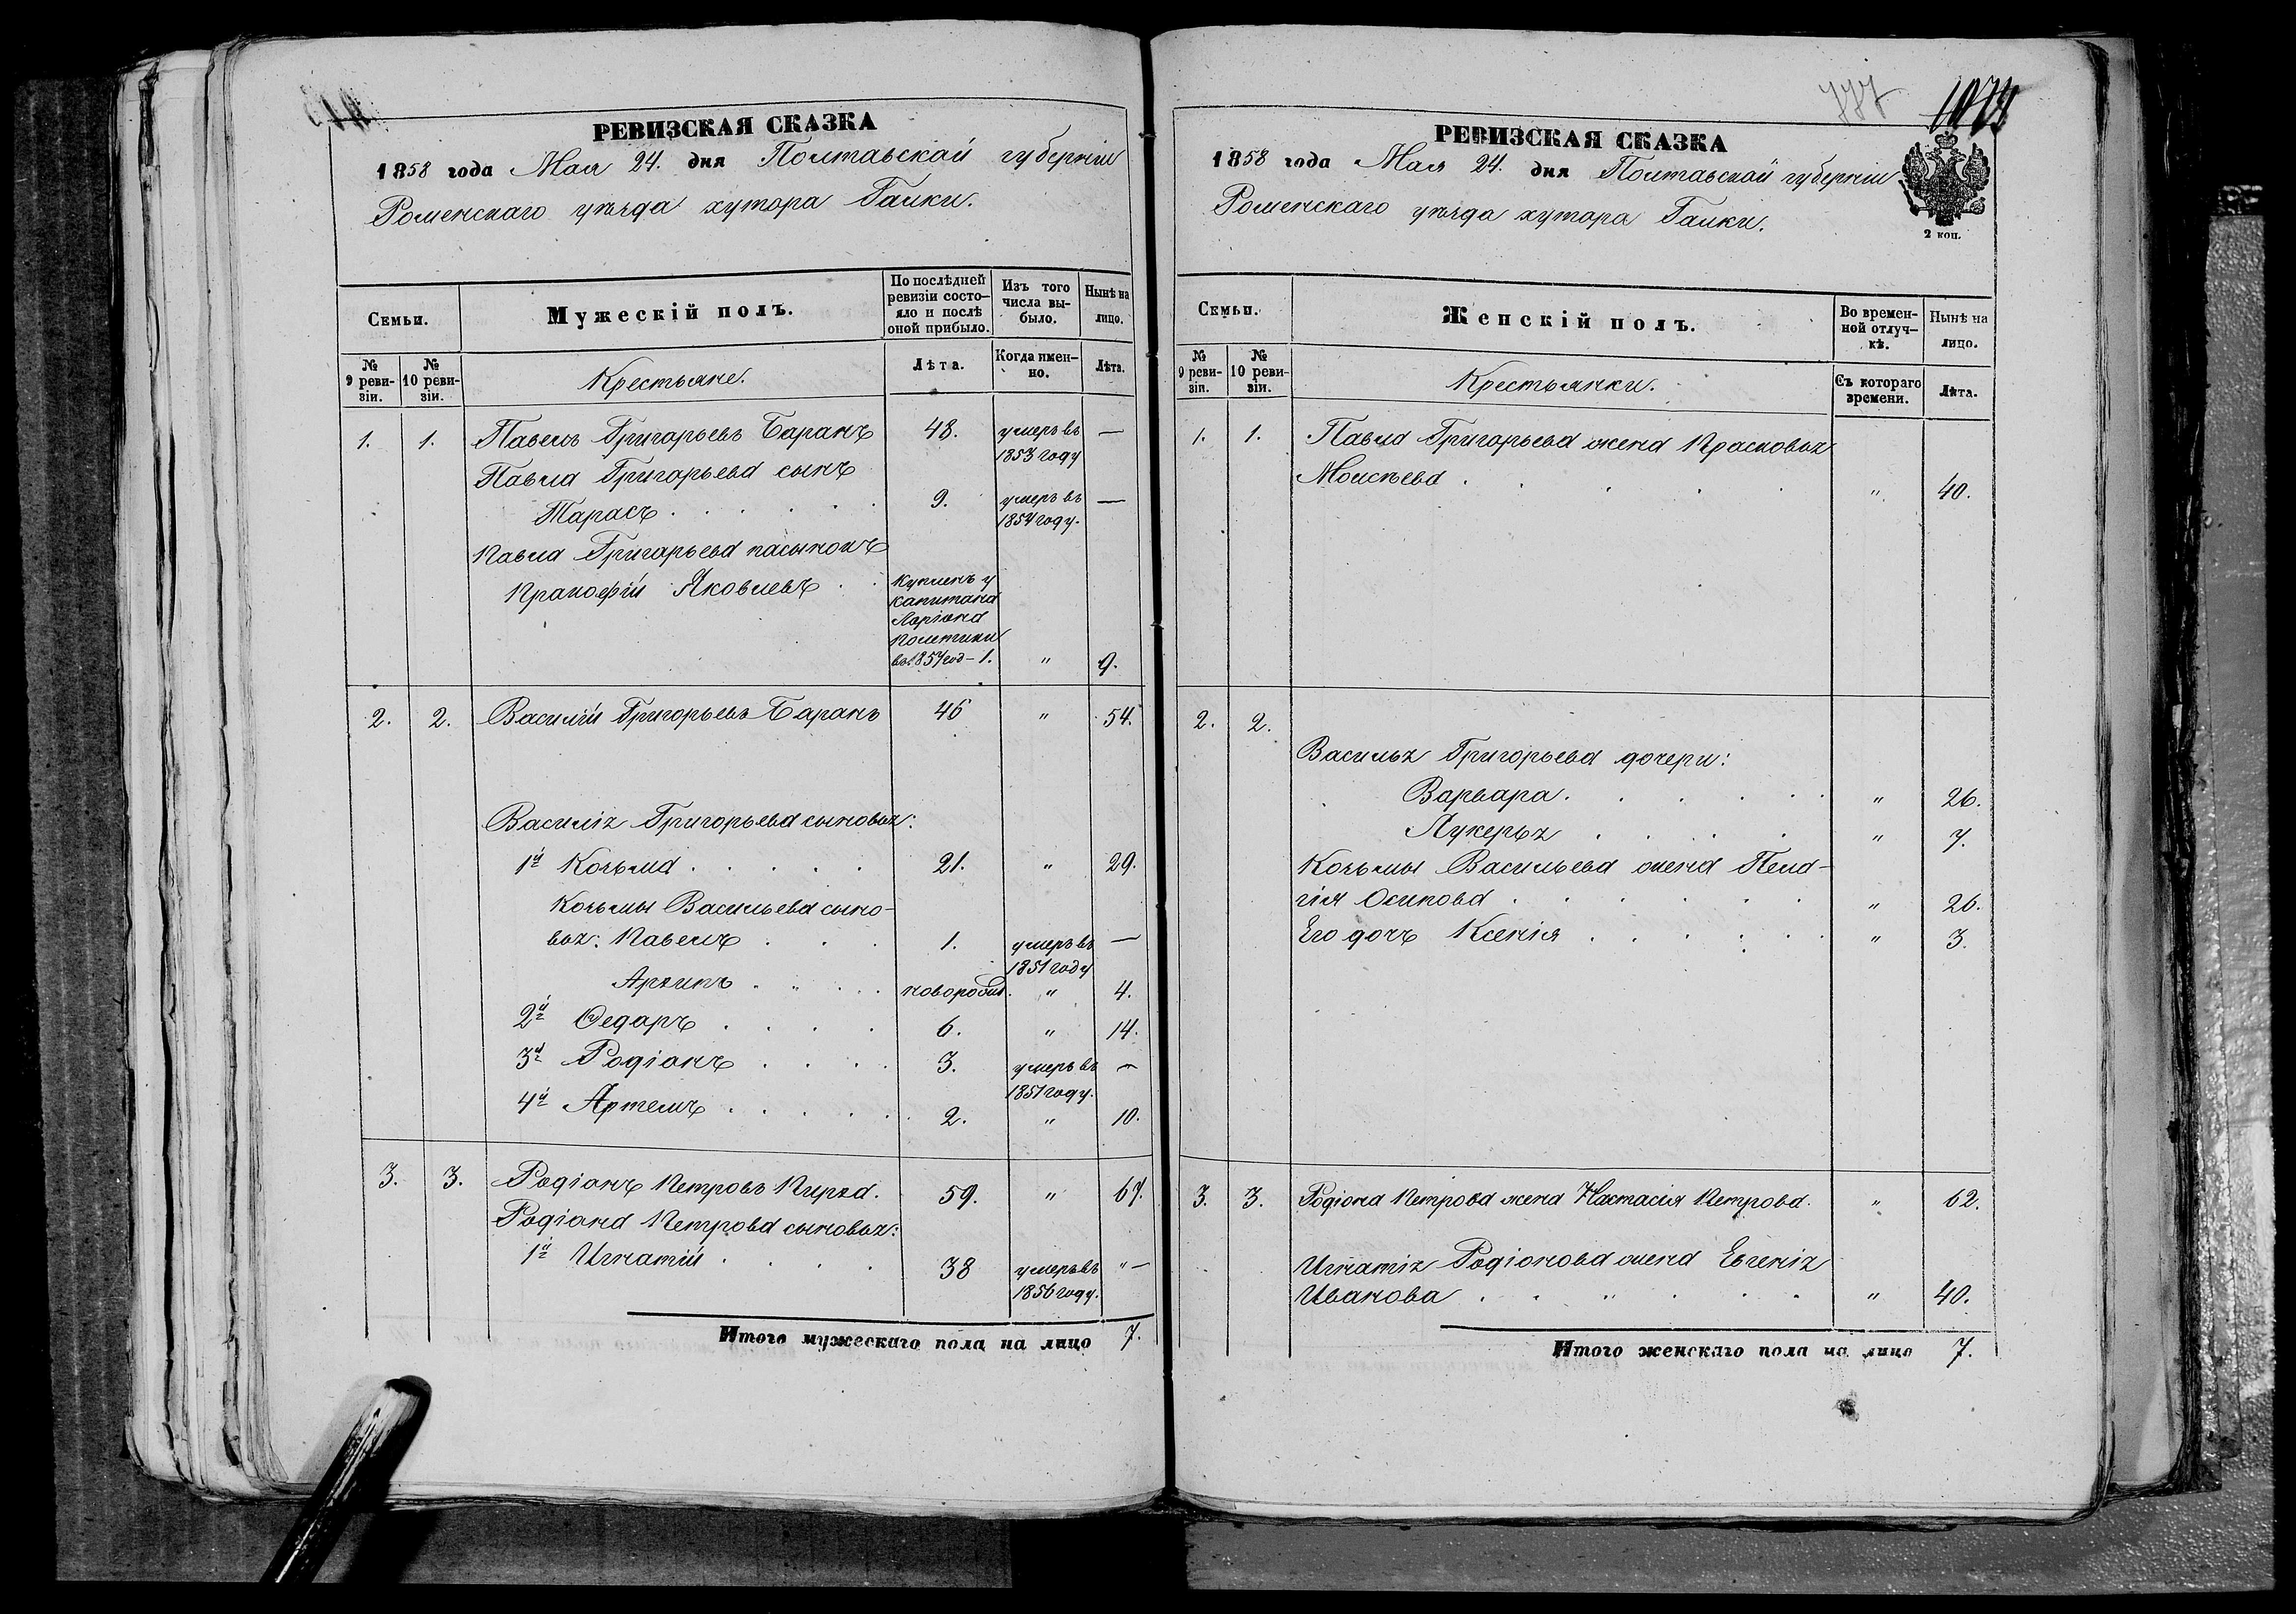 РЕВИЗСКАЯ СКАЗКА
1858 года Мая 24. дня Полтавской губерніи
Роменскаго уѣзда хутора Галки.
Семьи.
Мужескій полъ.
По послѣдней ревизіи состо-яло и послѣ оной прибыло.
Изъ того числа вы-было.
Нынѣ на лицо.
№ 9 реви-зіи.
№ 10 реви-зіи.
Крестьяне.
Лѣта.
Когда имен-но.
Лѣта.
1. 1. Павелъ Григорьевъ Баранъ 48. умеръ въ 1853 году —
Павла Григорьева сынъ
Тарасъ 9. умеръ въ 1854 году. —
Павла Григорьева пасынокъ
Прокофій Яковлевъ
Купленъ у
капитана
Ларіона
Полетики
въ 1857 год – 1. " 9.
2. 2. Василій Григорьевъ Баранъ 46 " 54.
Василія Григорьева сыновья:
1й Козьма 21. " 29.
Козьмы Васильева сыно-
вья: Павелъ 1. умеръ въ 1851 году —
Архипъ новорожд. " 4.
2й Федоръ 6. " 14.
3й Родіонъ 3. умеръ въ 1851 году. —
4й Артемъ 2. " 10.
3. 3. Родіонъ Петровъ Пирха. 59. " 67.
Родіона Петрова сыновья:
1й Игнатій 38 умеръ въ 1856 году. " —
Итого мужескаго пола на лицо 7.
777
РЕВИЗСКАЯ СКАЗКА
1858 года Мая 24. дня Полтавской губерніи
Роменскаго уѣзда хутора Галки.
2 коп.
Семьи.
Женскій полъ.
Во времен-ной отлуч-кѣ.
Нынѣ на лицо.
№ 9 реви-зіи.
№ 10 реви-зіи.
Крестьянки.
Съ котораго времени.
Лѣта.
1. 1. Павла Григорьева жена Прасковья
Моисѣева " 40.
2. 2.
Василья Григорьева дочери:
Варвара. " 26.
Лукерья " 7.
Козьмы Васильева жена Пела-
гія Осипова " 26.
Его дочь Ксенія " 3.
3. 3. Родіона Петрова жена Настасія Петрова. " 62.
Игнатія Родіонова жена Евгенія
Иванова " 40.
Итого женскаго пола на лицо 7.